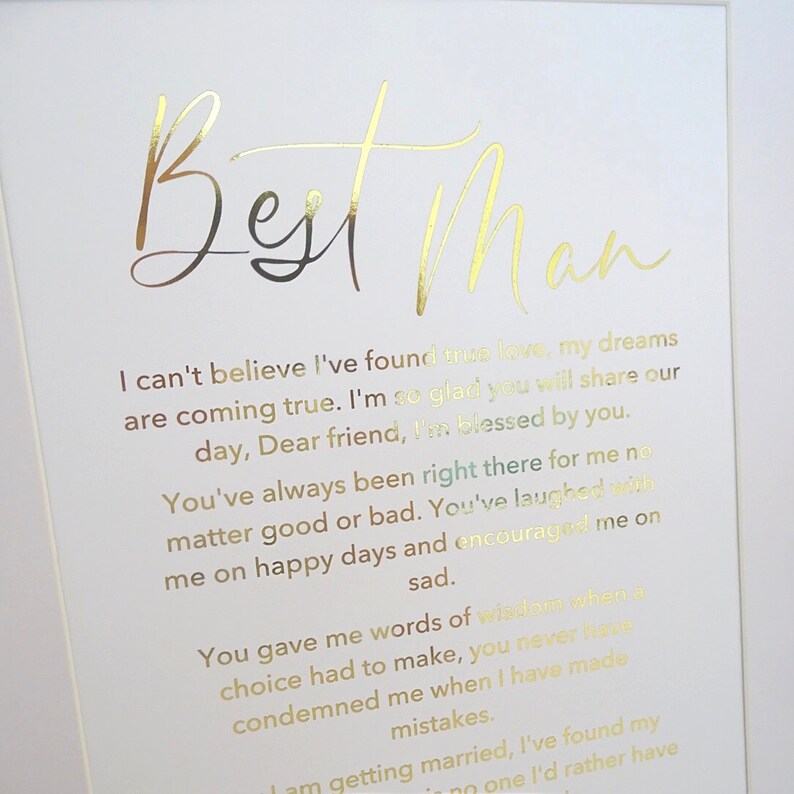 Best Man
I can't believe I've found true love, my dreams
are coming true. I'm so glad you will share our
day, Dear friend, I'm blessed by you.
You've always been right there for me no
matter good or bad. You've laughed with
me on happy days and encouraged me on
sad.
You gave me words of wisdom when a
choice had to make, you never have
condemned me when I have made
mistakes.
I am getting married, I've found my
no one I'd rather have